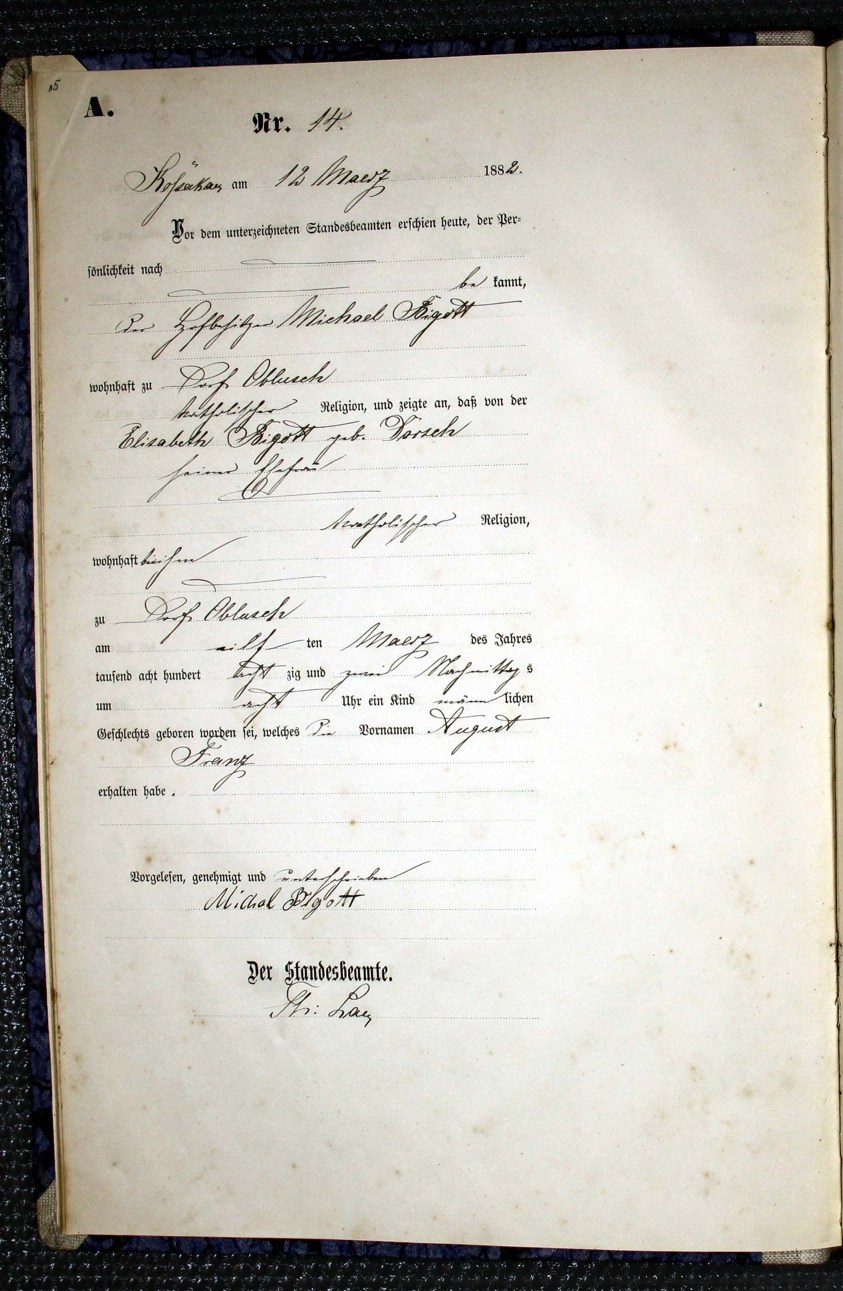 15
A.
Nr. 14.
Kossakau am 12 Maerz 1882.
Vor dem unterzeichneten Standesbeamten erschien heute, der Per-
sönlichkeit nach
be kannt,
der Hofbesitzer Michael Bigott
wohnhaft zu Dorf Oblusch
katholischer Religion, und zeigte an, daß von der
Elisabeth Bigott geb. Dorsch
seiner Ehefrau
katholischer Religion,
wohnhaft bei ihm
zu Dorf Oblusch
am eilf ten Maerz des Jahres
tausend acht hundert acht zig und zwei Nachmittag s
um acht Uhr ein Kind männ lichen
Geschlechts geboren worden sei, welches die Vornamen August
Franz
erhalten habe .
Vorgelesen, genehmigt und unterschrieben
Michal Bigott
Der Standesbeamte.